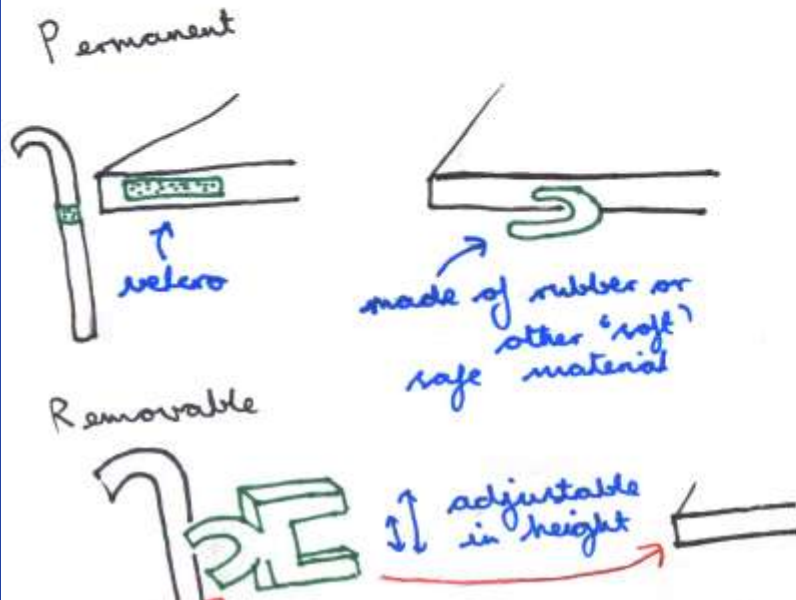 Permanent
velcro
made of rubber or
other 'soft'
safe material
Removable
adjustable
in height